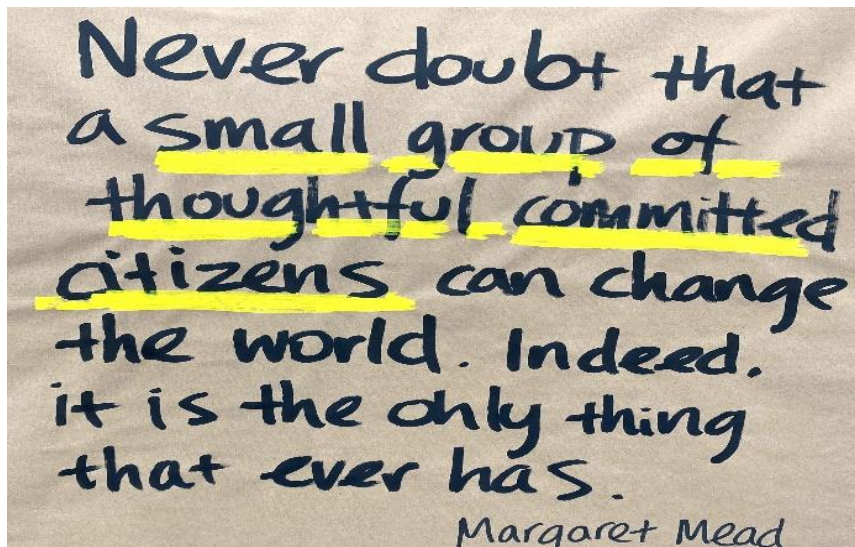 Never doubt that
a small group of
thoughtful committed
citizens can change
the world. Indeed.
it is the only thing
that ever has.
Margaret Mead